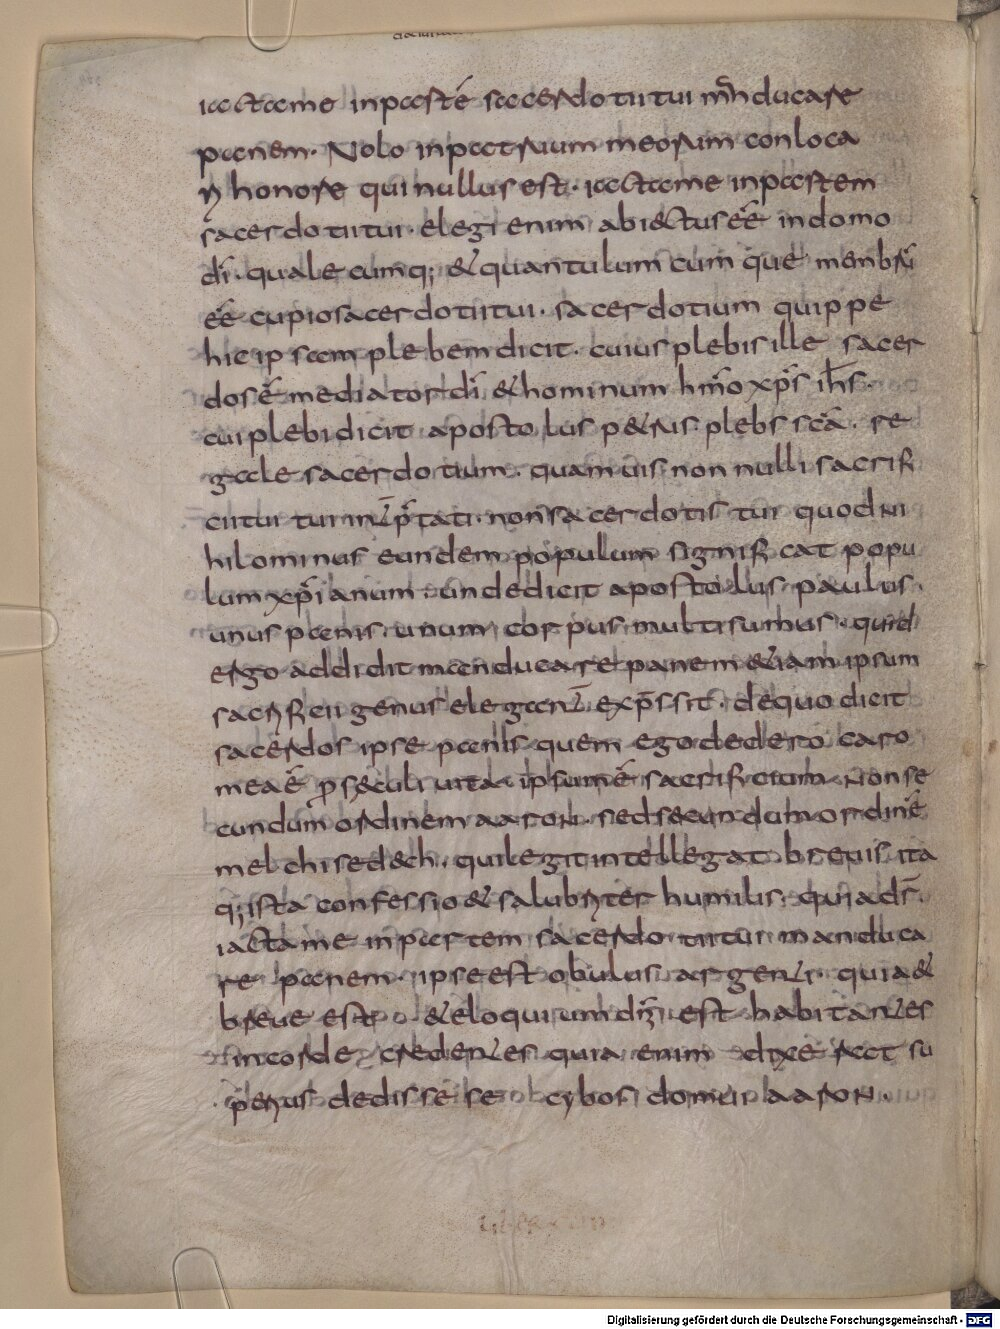 iactame inparte sacerdotii tui manducare
panem. Nolo inpatruum meorum conloca
ri honore qui nullus est. iactame inpartem
sacerdotii tui. elegi enim abiectus eē indomo
dī. quale cumq; & quantulum cum que menbrū
eē cupio sacerdotii tui. sacerdotium quippe
hic ipsam plebem dicit. cuius plebis ille sacer
dos ē mediator dī & hominum hmō xp̄s ih̄s.
cui plebi dicit apostolus petrus plebs scā. re
gale sacerdotium. quam uis non nulli sacrifi
cii tui tui interp̄tati non sacerdotis tui quod ni
hilominus eundem populum significat popu
lum xp̄ianum. unde dicit apostolus paulus.
unus panis unum corpus multi sumus. quid
ergo addidit manducare panem etiam ipsum
sacrificii genus eleganter exp̄ssit. de quo dicit
sacerdos ipse panis quem ego dedero caro
mea ē p̄ sęculi uita ipsum ē sacrificium. Non se
cundum ordinem aaron. sed secundum ordinē
melchisedech. qui legit intellegat breuis ita
q; ista confessio & salubriter humilis. qui a dr̄.
iacta me in partem sacerdotii tui manduca
re panem. ipse est obulus argenti. quia &
breue est & eloquium dn̄i est habitantes
in corde credentes quia enim dixerat su
perius dedisse se cybos domui aaron.
Digitalisierung gefördert durch die Deutsche Forschungsgemeinschaft - DFG